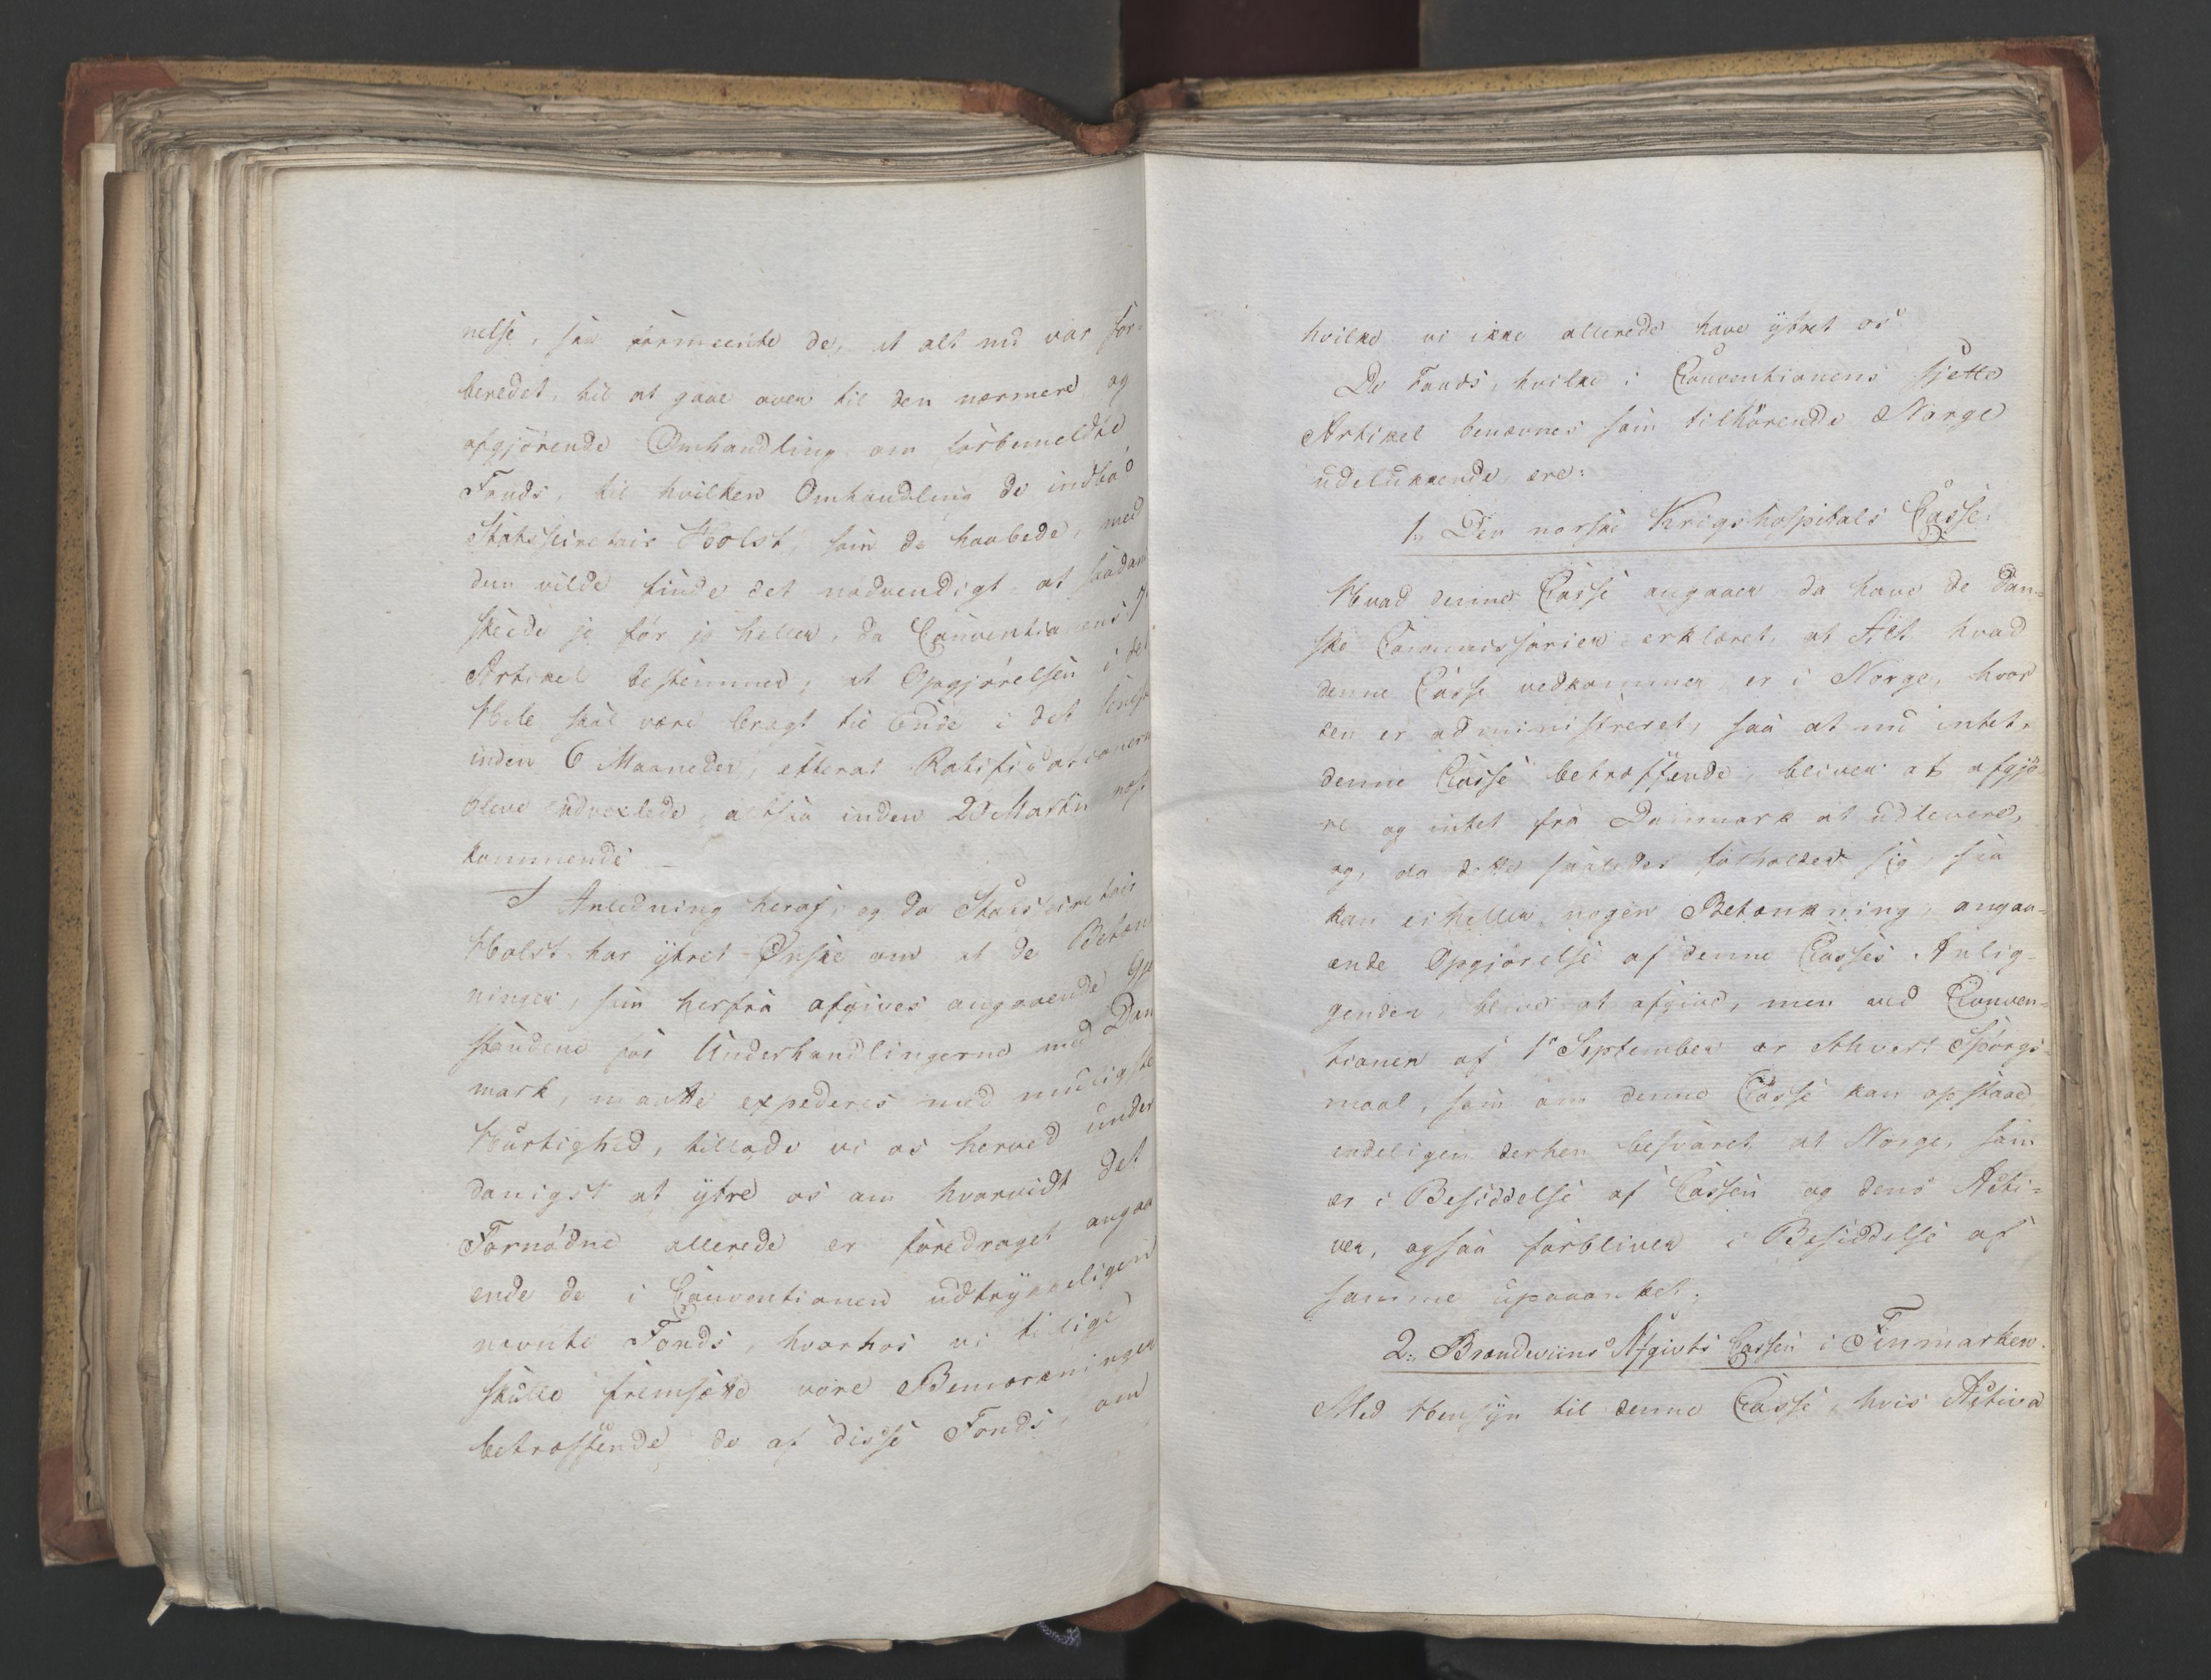 nelse, saa formeente de, at alt nu var for-
beredet, til at gaae over til den nærmere og
afgjørende Omhandling om forbemeldte
Fonds, til hvilken Omhandling de indbød
Statssecretair Holst, som de haabede, med
dem vilde finde det nødvendigt at saadant
skeede jo før jo heller, da Conventionens 7de
Artikel bestemmer, at Opgjørelsen i det
Hele skal være bragt til Ende i det seneste
inden 6 Maaneder, efterat Ratificationerne
bleve udvexlede, altsaa inden 20 Martii næst
kommende
I Anledning heraf, og da Statssecretair
Holst har yttret Ønske om at de Betænk
ninger, som herfra afgives angaaende Gjen
standene for Underhandlingerne med Dan
mark, maatte expederes med muligste
Hurtighed, tillade vi os herved under
danigst at yttre os om hvorvidt det
Fornødne allerede er foredraget angaa
ende de i Conventionen udtrykkeligen
nævnte Fonds, hvorhos vi tillige
skulle fremsætte vore Bemærkninger
betræffende de af disse Fonds, om
hvilke vi ikke allerede have yttret os
De Fonds, hvilke i Conventionens sjette
Artikel benævnes som tilhørende Norge
udelukkende ere:
1., Den norske Krigshospitals Casse.
Hvad denne Casse angaaer da have de Dan-
ske Commissarier erklæret, at Alt hvad
denne Casse vedkommer er i Norge, hvor
den er administreret, saa at nu intet,
denne Casse betræffende, bliver at afgjø-
re og intet fra Danmark at udlevere,
og, da dette saaledes forholder sig, saa
kan ei heller nogen Betænkning, angaa-
ende Opgjørelse af denne Casses Anlig-
gender, blive at afgive, men ved Conven-
tionen af 1ste September er ethvert Spørgs-
maal, som om denne Casse kan opstaae
endeligen derhen besvaret at Norge, som
er i Besiddelse af Cassen og dens Acti-
ver, ogsaa forbliver i Besiddelse af
samme upaaanket.
2., Brændeviins Afgivts Cassen i Finmarken.
Med Hensyn til denne Casse, hvis Activa